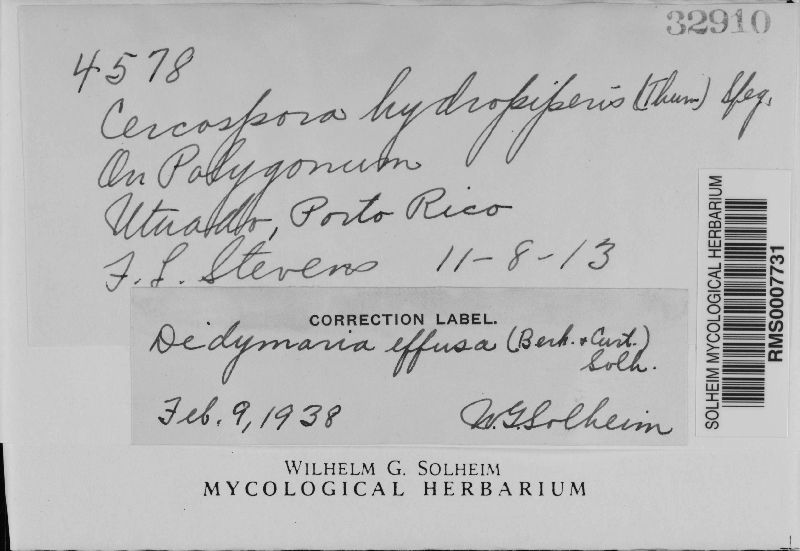 32910
4578
Cercospora hydropiperis (Thum) Speg.
On Polygonum
Utuado, Porto Rico
F. L. Stevens 11-8-13
CORRECTION LABEL.
Didymaria effusa (Berk. & Curt.)
Solh.
Feb. 9, 1938 W.G. Solheim
WILHELM G. SOLHEIM
MYCOLOGICAL HERBARIUM
SOLHEIM MYCOLOGICAL HERBARIUM
RMS0007731